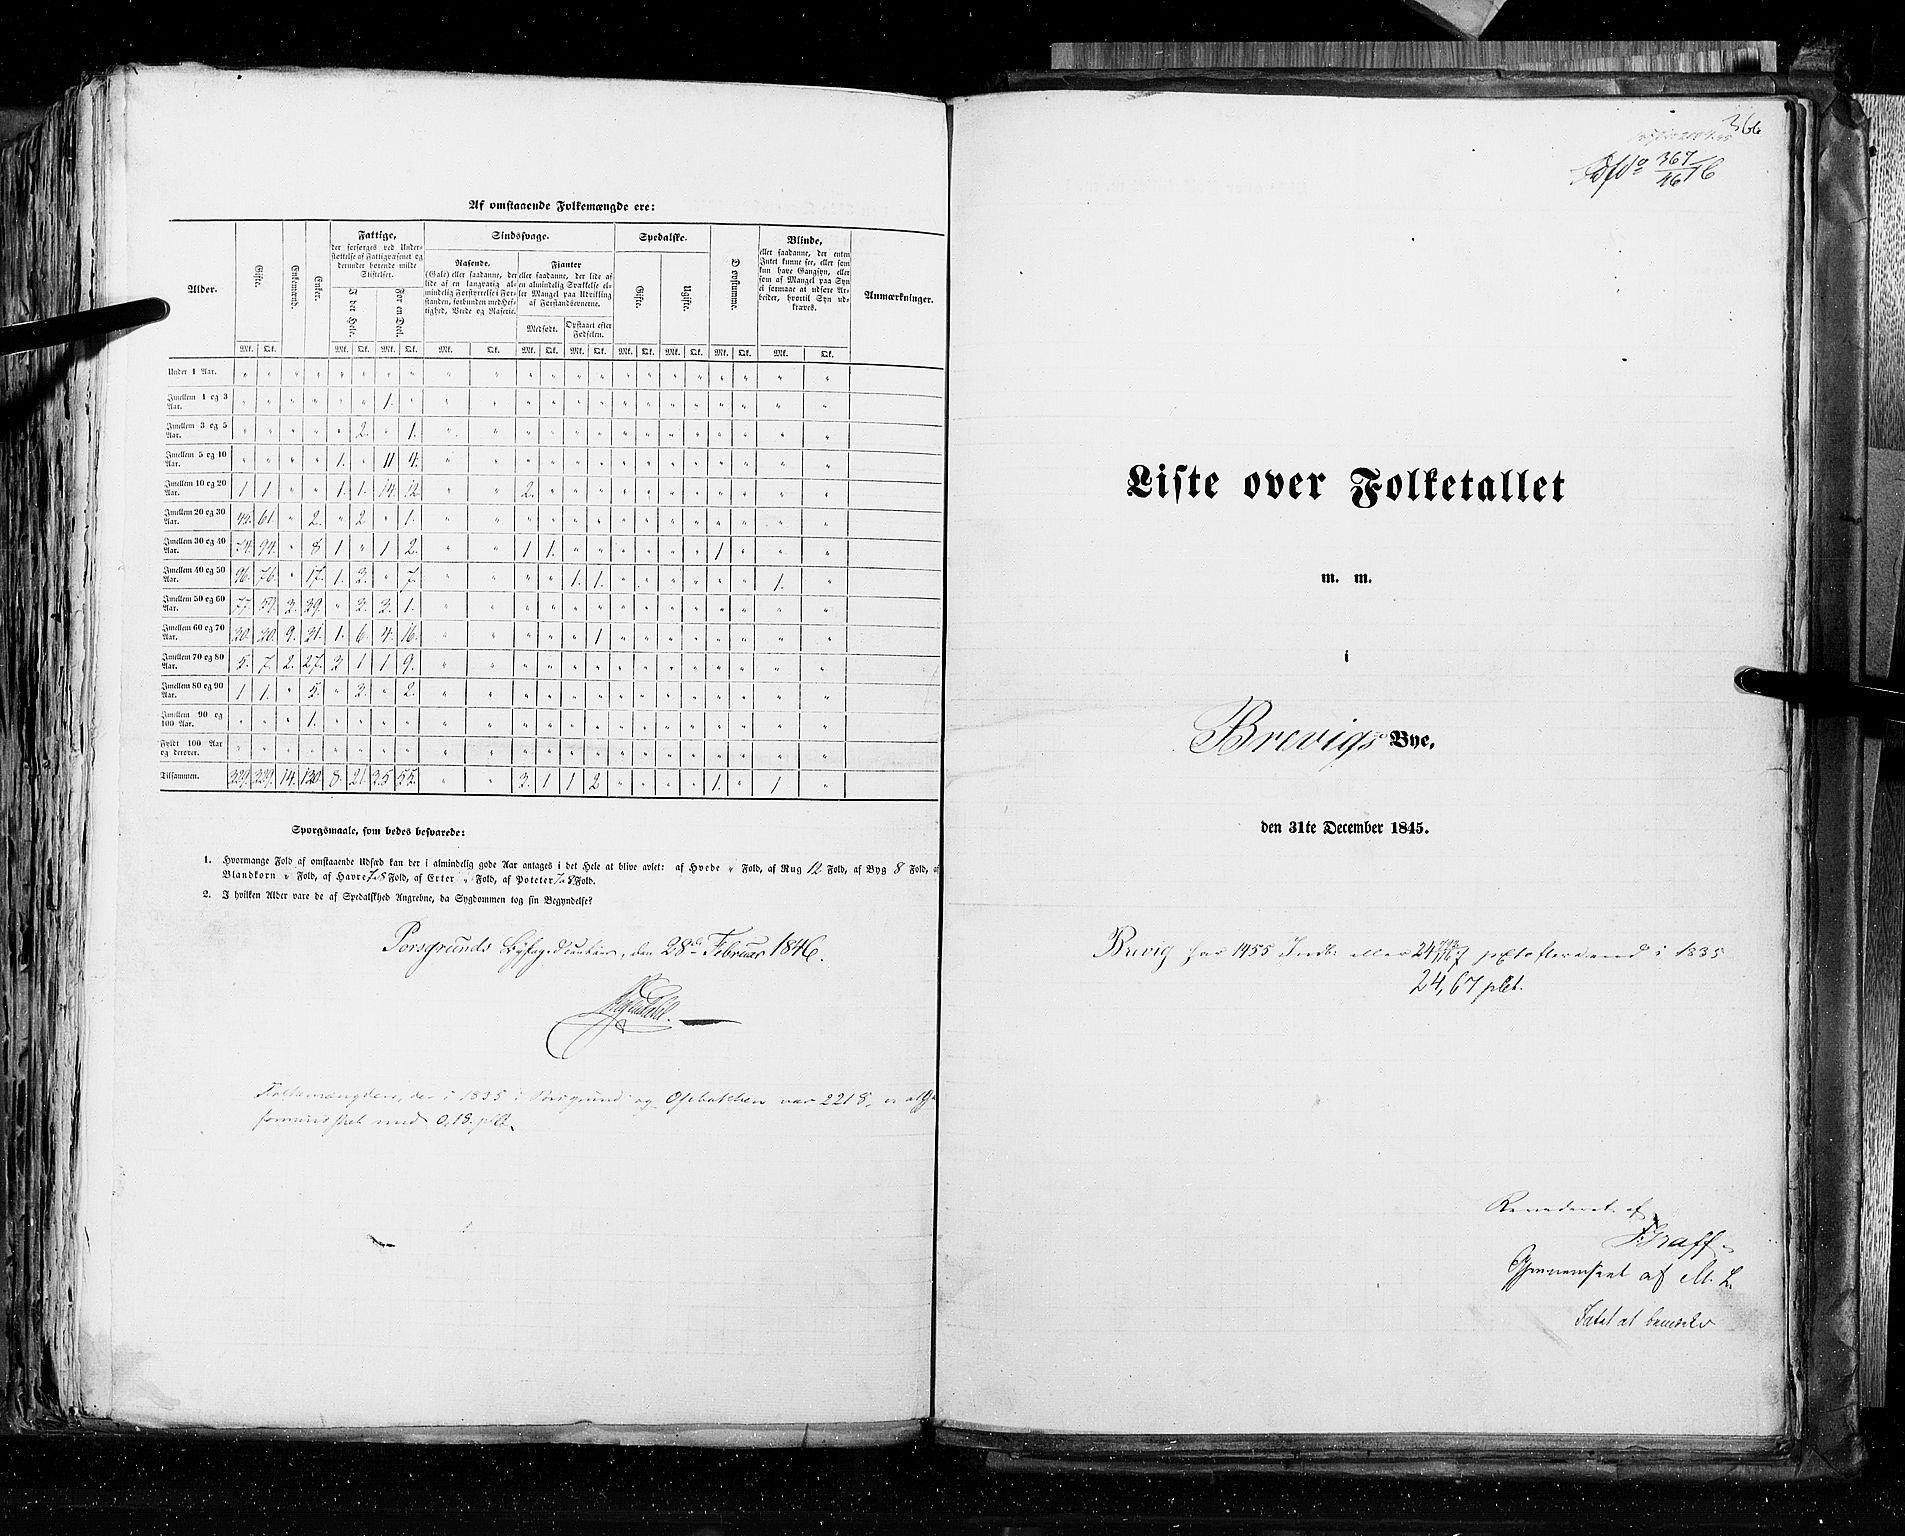 Af omstaaende Folkemængde ere:
Alder. Gifte. Enkemænd. Enker. Fattige, Sindssvage. Spedalske. Døvstumme. Blinde, Anmærkninger.
der forsørges ved Under-
støttelse af Fattigvæsenet og
derunder hørende milde
Stiftelser.
I det Hele. For en Deel.
Rasende.
(Gale) eller saadanne, der
lide af en langvarig al-
mindelig Forstyrrelse i For-
standen, forbunden med Hef-
tighed, Vrede og Raserie.
Fjanter
eller saadanne, der lide af
en almindelig Svækkelse el-
ler Mangel paa Udvikling
af Forstandsevnerne.
Medfødt. Opstaaet efter Fødselen.
Gifte. Ugifte.
eller saadanne, der enten
Intet kunne see, eller som
kun have Gangsyn, eller
som af Mangel paa Syn
ei formaae at udføre Ar-
beider, hvortil Syn ud-
kræves.
Mk. Qk. Mk. Qk. Mk. Qk. Mk. Qk. Mk. Qk. Mk. Qk. Mk. Qk. Mk. Qk. Mk. Qk. Mk. Qk.
Under 1 Aar. " " " " " " " " " " " " " " " " " " " " " "
Imellem 1 og 3 Aar. " " " " " " 1. " " " " " " " " " " " " " " "
Imellem 3 og 5 Aar. " " " " " 2. " 1. " " " " " " " " " " " " " "
Imellem 5 og 10 Aar. " " " " 1. " 11 4. " " " " " " " " " " " " " "
Imellem 10 og 20 Aar. 1 1. " " 1. 1. 14. 12. " " 2. " " " " " " " " " " "
Imellem 20 og 30 Aar. 61. " 2. " 2 " 1. " " " " " " " " " " " " " "
Imellem 30 og 40 Aar. 94. " 8 1 " 1 2. " " 1 1. " " " " " " 1 " " "
Imellem 40 og 50 Aar. 96. 76. " 17. 1. " 7. " " " " 1. 1. " " " " " " 1. "
Imellem 50 og 60 Aar. 77. 39. " 1. " " " " " " " " " " " " " "
Imellem 60 og 70 Aar. 30. 20. 9. 31. 1. 6. 4. 16. " " " " " 1 " " " " " " " "
Imellem 70 og 80 Aar. 5. 7. 2. 27. 3 1 1 9. " " " " " " " " " " " " " "
Imellem 80 og 90 Aar. 1 1. " 5. " " 2. " " " " " " " " " " " " " "
Imellem 90 og 100 Aar. " " " 1. " " " " " " " " " " " " " " " " " "
Fyldt 100 Aar og derover. " " " " " " " " " " " " " " " " " " " " " "
Tilsammen. 329. 329. 14. 130. 8. 21 55. " " 3. 1 1 2 " " " " 1. " 1 "
Spørgsmaale, som bedes besvarede:
1. Hvormange Fold af omstaaende Udsæd kan der i almindelig gode Aar antages i det Hele at blive avlet: af Hvede " Fold, af Rug 12 Fold, af Byg 8 Fold, af
Blandkorn " Fold, af Havre 7 a 8 Fold, af Erter " Fold, af Poteter 7 a 8 Fold.
2. I hvilken Alder vare de af Spedalskhed Angrebne, da Sygdommen tog sin Begyndelse?
Porsgrunds den 28de Februar 1846.
Folkemængden, der i 1835 i Porsgrund og Osebakken var 2218, er altsaa
formindsket med 0,18 pCt.
366
367
46
Liste over Folketallet
m. m.
i
Brevigs Bye,
den 31te December 1845.
Brevig har 1455 Indb: eller flere end i 1835
24,67 pCt.
Revideret af
Gjennemseet af M. L.